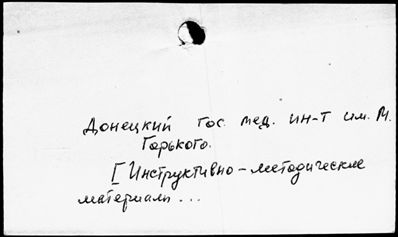 Донецкий гос. мед. ин-т им. М.
Горького.
[Инструктивно-методические
материалы ...